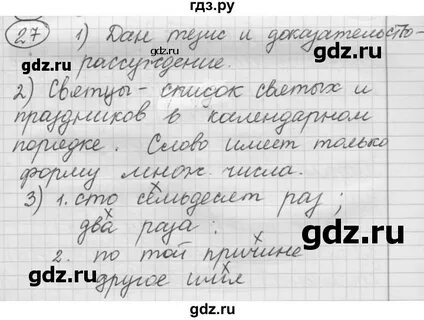 гдз.ру
27 1) Дан тезис и доказательство-
рассуждение.
2) Святцы - список святых и
праздников в календарном
порядке. Слово имеет только
форму множ. числа.
3) 1. сто семьдесят раз;
gdz.ru
два раза:
gdz.ru
2. по той причине
gdz.ru
другое имя
gdz.ru